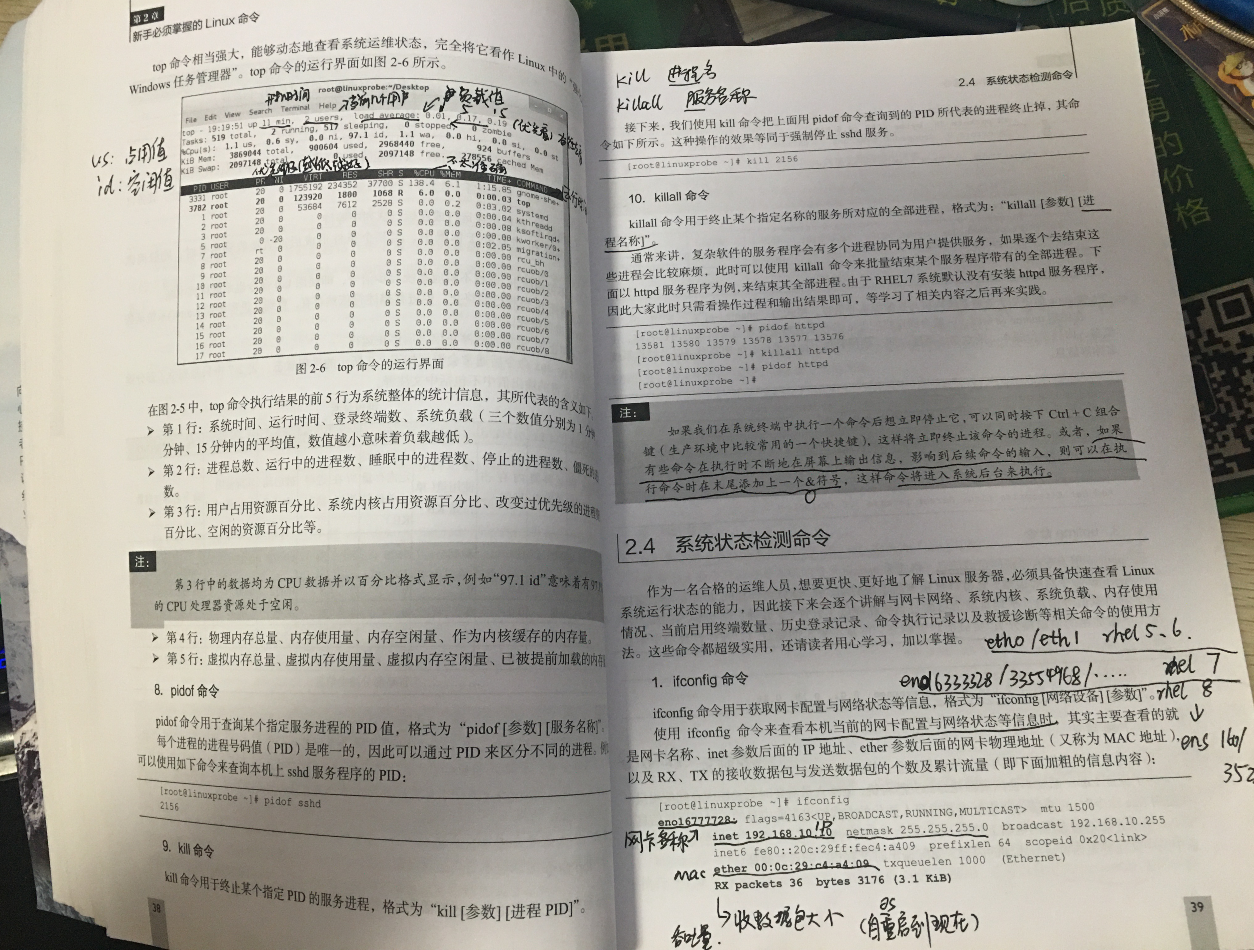 第2章
新手必须掌握的 Linux 命令
top 命令相当强大，能够动态地查看系统运维状态，完全将它看作 Linux 中的
Windows 任务管理器”。top 命令的运行界面如图 2-6 所示。
root@linuxprobe:~/Desktop
File Edit View Search Terminal Help
开机时间
当前几个用户
负载值
top - 19:19:51 up 11 min, 2 users, load average: 0.01, 0.17, 0.19
Tasks: 519 total, 2 running, 517 sleeping, 0 stopped, 0 zombie
%Cpu(s): 1.1 us, 0.6 sy, 0.0 ni, 97.1 id, 1.1 wa, 0.0 hi, 0.0 si, 0.0 st
KiB Mem: 3869044 total, 900604 used, 2968440 free, 924 buffers
KiB Swap: 2097148 total, 0 used, 2097148 free, 378556 cached Mem
us: 占用值
id: 空闲值
PID USER PR NI VIRT RES SHR S %CPU %MEM TIME+ COMMAND
3331 root 20 0 1755192 234352 37700 S 138.4 6.1 1:15.85 gnome-she+
3782 root 20 0 123920 1800 1068 R 6.0 0.0 0:00.03 top
1 root 20 0 53684 7612 2528 S 0.0 0.2 0:03.02 systemd
2 root 20 0 0 0 0 S 0.0 0.0 0:00.04 kthreadd
3 root 20 0 0 0 0 S 0.0 0.0 0:00.08 ksoftirqd+
5 root 0 -20 0 0 0 S 0.0 0.0 0:00.00 kworker/0+
7 root rt 0 0 0 0 S 0.0 0.0 0:02.05 migration+
8 root 20 0 0 0 0 S 0.0 0.0 0:00.00 rcu_bh
9 root 20 0 0 0 0 S 0.0 0.0 0:00.00 rcuob/0
10 root 20 0 0 0 0 S 0.0 0.0 0:00.00 rcuob/1
11 root 20 0 0 0 0 S 0.0 0.0 0:00.00 rcuob/2
12 root 20 0 0 0 0 S 0.0 0.0 0:00.00 rcuob/3
13 root 20 0 0 0 0 S 0.0 0.0 0:00.00 rcuob/4
14 root 20 0 0 0 0 S 0.0 0.0 0:00.00 rcuob/5
15 root 20 0 0 0 0 S 0.0 0.0 0:00.00 rcuob/6
16 root 20 0 0 0 0 S 0.0 0.0 0:00.00 rcuob/7
17 root 20 0 0 0 0 S 0.0 0.0 0:00.00 rcuob/8
图 2-6 top 命令的运行界面
在图 2-5 中，top 命令执行结果的前 5 行为系统整体的统计信息，其所代表的含义如下
➢ 第 1 行：系统时间、运行时间、登录终端数、系统负载（三个数值分别为 1 分钟
分钟、15 分钟内的平均值，数值越小意味着负载越低）。
➢ 第 2 行：进程总数、运行中的进程数、睡眠中的进程数、停止的进程数、僵死的
数。
➢ 第 3 行：用户占用资源百分比、系统内核占用资源百分比、改变过优先级的进程
百分比、空闲的资源百分比等。
注：
第 3 行中的数据均为 CPU 数据并以百分比格式显示，例如“97.1 id”意味着有
的 CPU 处理器资源处于空闲。
➢ 第 4 行：物理内存总量、内存使用量、内存空闲量、作为内核缓存的内存量。
➢ 第 5 行：虚拟内存总量、虚拟内存使用量、虚拟内存空闲量、已被提前加载的内存
8. pidof 命令
pidof 命令用于查询某个指定服务进程的 PID 值，格式为“pidof [参数] [服务名称]”。
每个进程的进程号码值（PID）是唯一的，因此可以通过 PID 来区分不同的进程。
可以使用如下命令来查询本机上 sshd 服务程序的 PID：
[root@linuxprobe ~]# pidof sshd
2156
9. kill 命令
kill 命令用于终止某个指定 PID 的服务进程，格式为“kill [参数] [进程 PID]”。
38
kill 进程名
killall 服务名称
2.4 系统状态检测命令
接下来，我们使用 kill 命令把上面用 pidof 命令查询到的 PID 所代表的进程终止掉，其命
令如下所示。这种操作的效果等同于强制停止 sshd 服务。
[root@linuxprobe ~]# kill 2156
10. killall 命令
killall 命令用于终止某个指定名称的服务所对应的全部进程，格式为：“killall [参数] [进
程名称]”。
通常来讲，复杂软件的服务程序会有多个进程协同为用户提供服务，如果逐个去结束这
些进程会比较麻烦，此时可以使用 killall 命令来批量结束某个服务程序带有的全部进程。下
面以 httpd 服务程序为例，来结束其全部进程。由于 RHEL7 系统默认没有安装 httpd 服务程序，
因此大家此时只需看操作过程和输出结果即可，等学习了相关内容之后再来实践。
[root@linuxprobe ~]# pidof httpd
13581 13580 13579 13578 13577 13576
[root@linuxprobe ~]# killall httpd
[root@linuxprobe ~]# pidof httpd
[root@linuxprobe ~]#
注：
如果我们在系统终端中执行一个命令后想立即停止它，可以同时按下 Ctrl + C 组合
键（生产环境中比较常用的一个快捷键），这样将立即终止该命令的进程。或者，如果
有些命令在执行时不断地在屏幕上输出信息，影响到后续命令的输入，则可以在执
行命令时在末尾添加上一个&符号，这样命令将进入系统后台来执行。
2.4 系统状态检测命令
作为一名合格的运维人员，想要更快、更好地了解 Linux 服务器，必须具备快速查看 Linux
系统运行状态的能力，因此接下来会逐个讲解与网卡网络、系统内核、系统负载、内存使用
情况、当前启用终端数量、历史登录记录、命令执行记录以及救援诊断等相关命令的使用方
法。这些命令都超级实用，还请读者用心学习，加以掌握。
eth0/eth1 rhel 5、6.
eno16333328/33554968/..... rhel 7
1. ifconfig 命令
rhel 8
ifconfig 命令用于获取网卡配置与网络状态等信息，格式为“ifconfig [网络设备] [参数]”。
使用 ifconfig 命令来查看本机当前的网卡配置与网络状态等信息时，其实主要查看的就
是网卡名称、inet 参数后面的 IP 地址、ether 参数后面的网卡物理地址（又称为 MAC 地址），
ens 160/
以及 RX、TX 的接收数据包与发送数据包的个数及累计流量（即下面加粗的信息内容）：
[root@linuxprobe ~]# ifconfig
eno16777728: flags=4163<UP,BROADCAST,RUNNING,MULTICAST> mtu 1500
网卡名称
IP
inet 192.168.10.10 netmask 255.255.255.0 broadcast 192.168.10.255
inet6 fe80::20c:29ff:fec4:a409 prefixlen 64 scopeid 0x20<link>
mac
ether 00:0c:29:c4:a4:09 txqueuelen 1000 (Ethernet)
RX packets 36 bytes 3176 (3.1 KiB)
收数据包大小
(自重启到现在)
吞吐量.
39